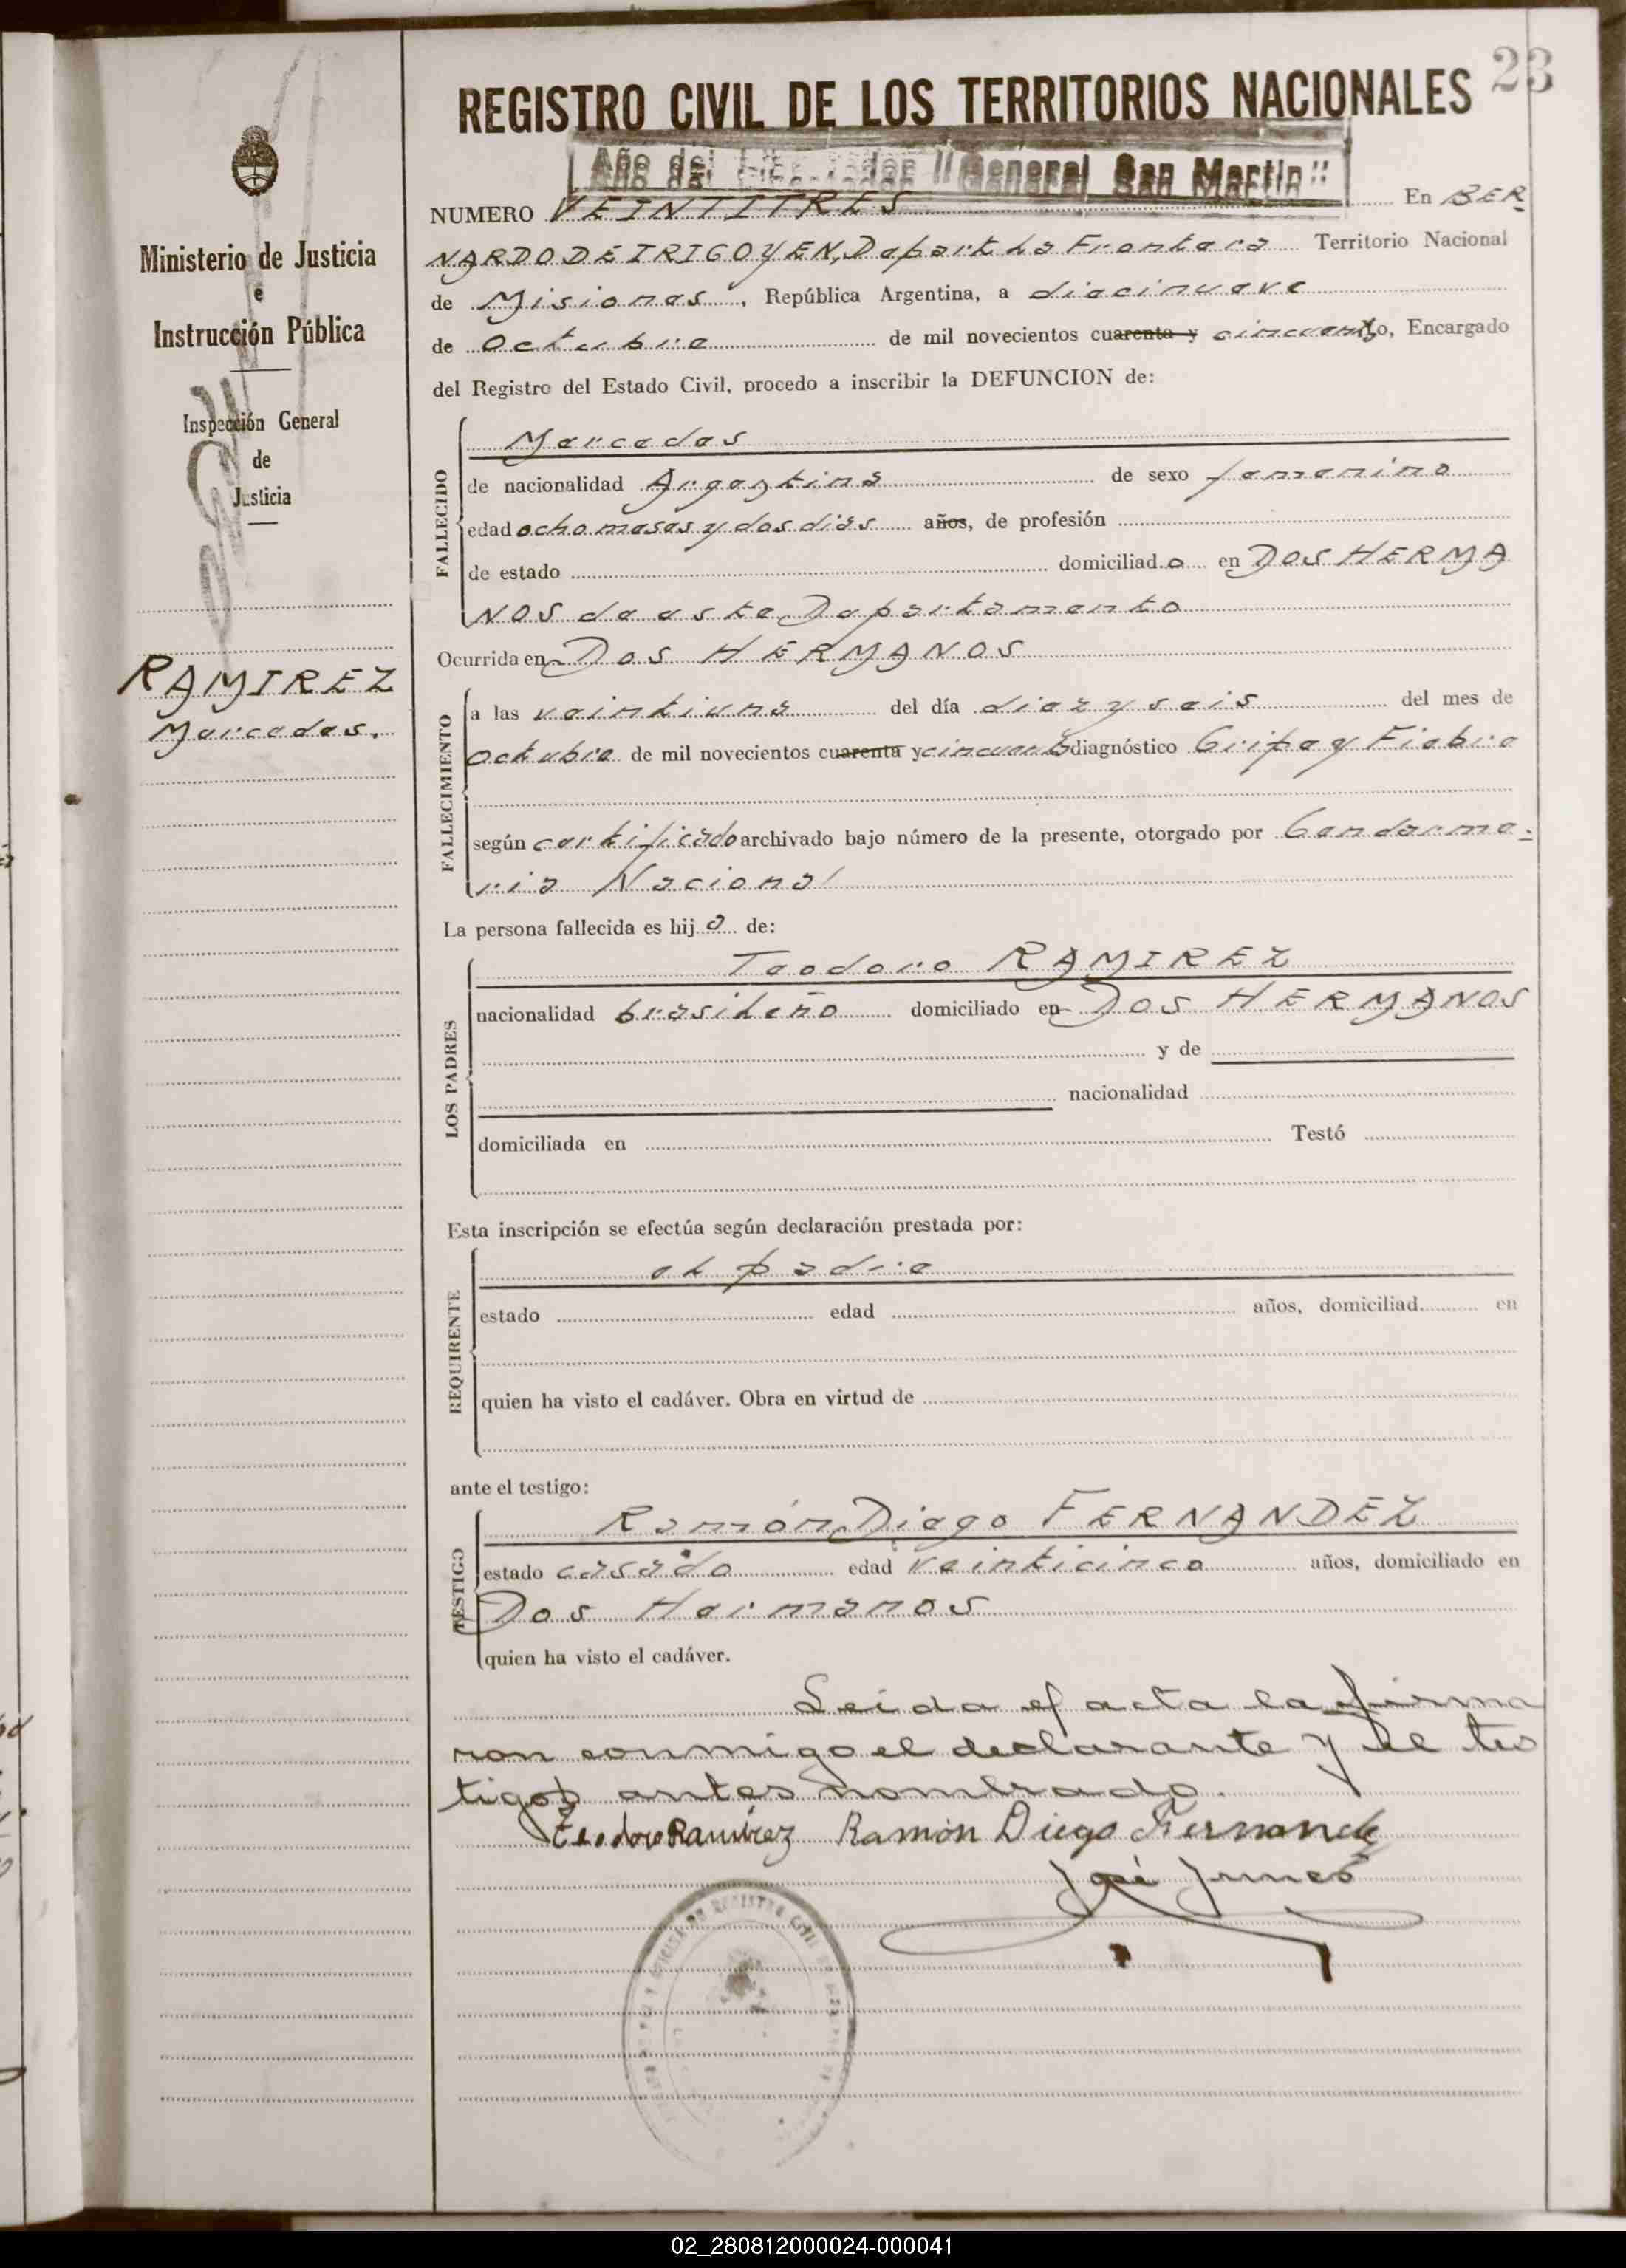 23
REGISTRO CIVIL DE LOS TERRITORIOS NACIONALES
Año del Libertador "General San Martin"
Ministerio de Justicia
e
Instrucción Pública
Inspección General
de
Justicia
RAMIREZ
Mercedes.
NUMERO VEINTITRES En BER
NARDO DE IRIGOYEN, Depart La Frontera Territorio Nacional
de Misiones, República Argentina, a diecinueve
de Octubre de mil novecientos cuarenta y cincuenta yo, Encargado
del Registro del Estado Civil, procedo a inscribir la DEFUNCION de:
FALLECIDO
Mercedes
de nacionalidad Argentina de sexo femenino
edad ocho meses y dos dias años, de profesión
de estado domiciliad a en DOS HERMA
NOS de este Departamento
Ocurrida en DOS HERMANOS
FALLECIMIENTO
a las veintiuna del día diez y seis del mes de
Octubre de mil novecientos cuarenta y cincuenta diagnóstico Gripe y Fiebre
según certificado archivado bajo número de la presente, otorgado por Gendarme-
ria Nacional
La persona fallecida es hij a de:
LOS PADRES
Teodoro RAMIREZ
nacionalidad brasileño domiciliado en DOS HERMANOS
y de
nacionalidad
domiciliada en Testó
Esta inscripción se efectúa según declaración prestada por:
REQUIRENTE
el padre
estado edad años, domiciliad en
quien ha visto el cadáver. Obra en virtud de
ante el testigo:
TESTIGO
Ramón Diego FERNANDEZ
estado casado edad veinticinco años, domiciliado en
Dos Hermanos
quien ha visto el cadáver.
Leida el acta la firma
ron conmigo el declarante y el tes
tigo antes nombrado.
Teodoro Ramirez Ramón Diego Fernandez
José
02_280812000024-000041